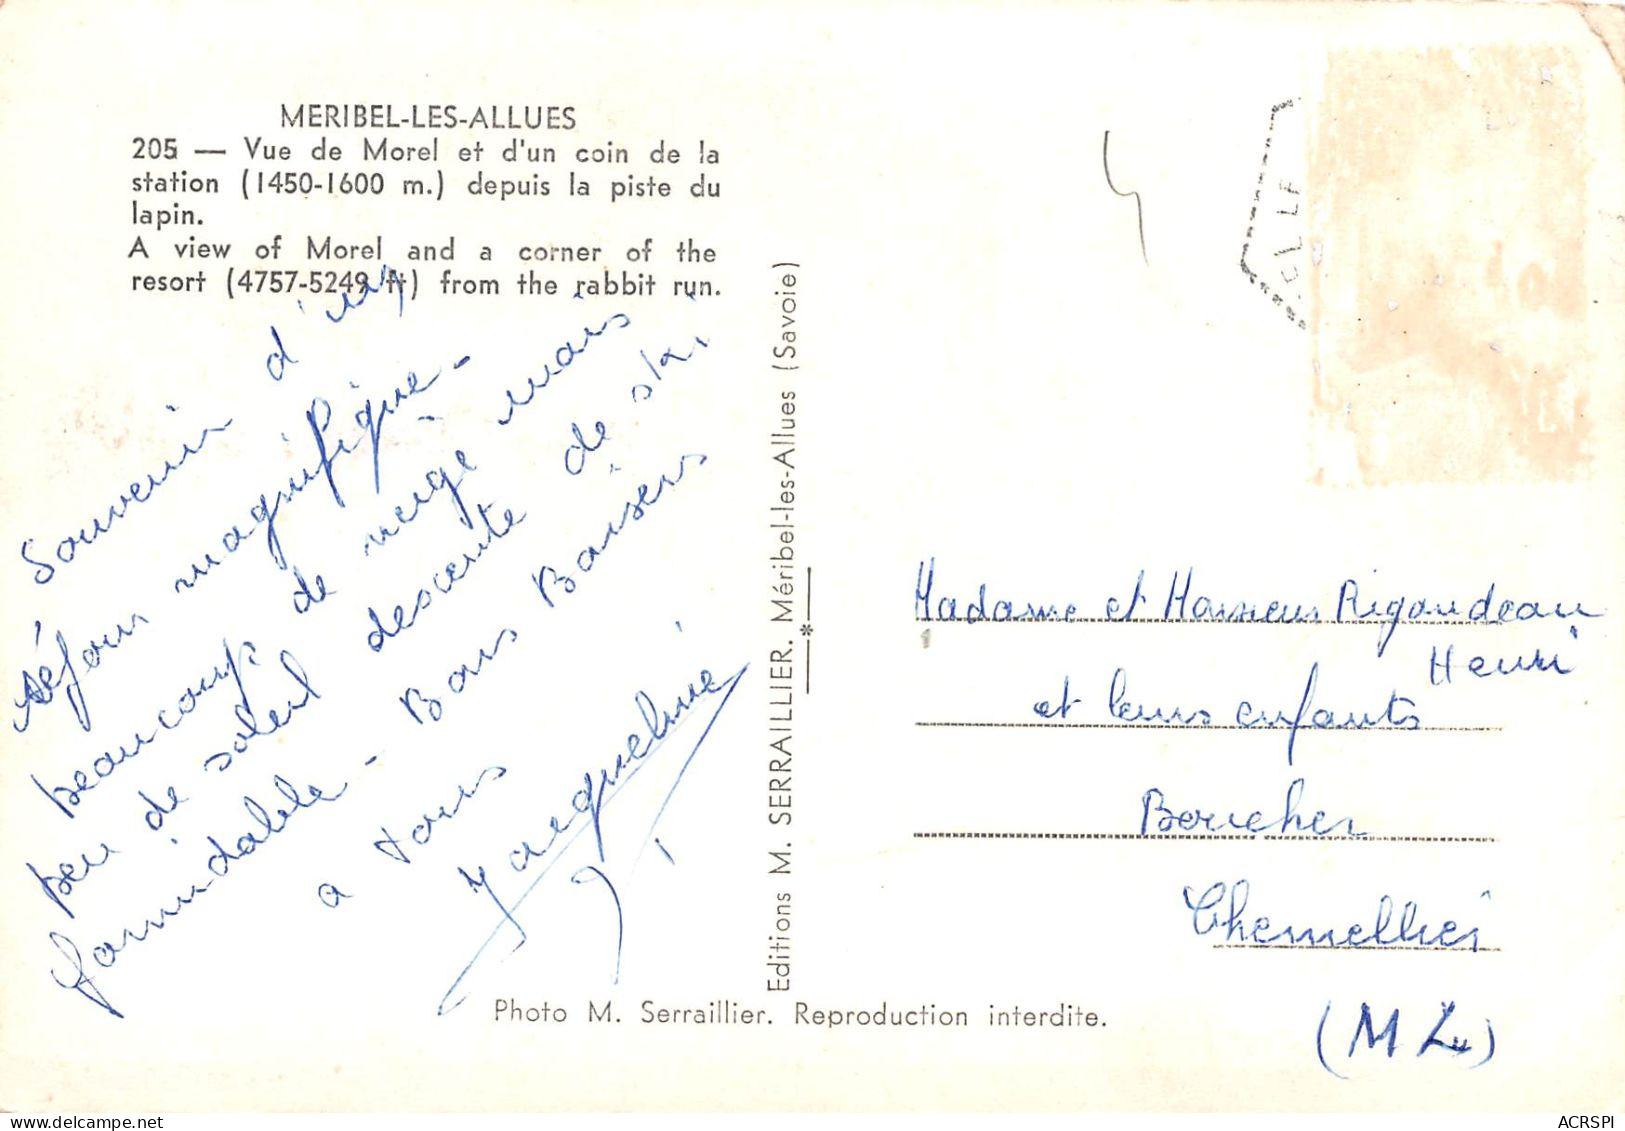 MERIBEL-LES-ALLUES
205 — Vue de Morel et d'un coin de la
station (1450-1600 m.) depuis la piste du
lapin.
A view of Morel and a corner of the
resort (4757-5249 ft) from the rabbit run.
Souvenir d'un
séjour magnifique -
beaucoup de neige mais
peu de soleil descente de ski
formidable - Bons Baisers
a tous
Jacqueline
Editions M. SERRAILLIER. Méribel-les-Allues (Savoie)
Photo M. Serraillier. Reproduction interdite.
Madame et Monsieur Rigaudeau
Henri
et leurs enfants
Chemellier
(M L)
ACRSPI